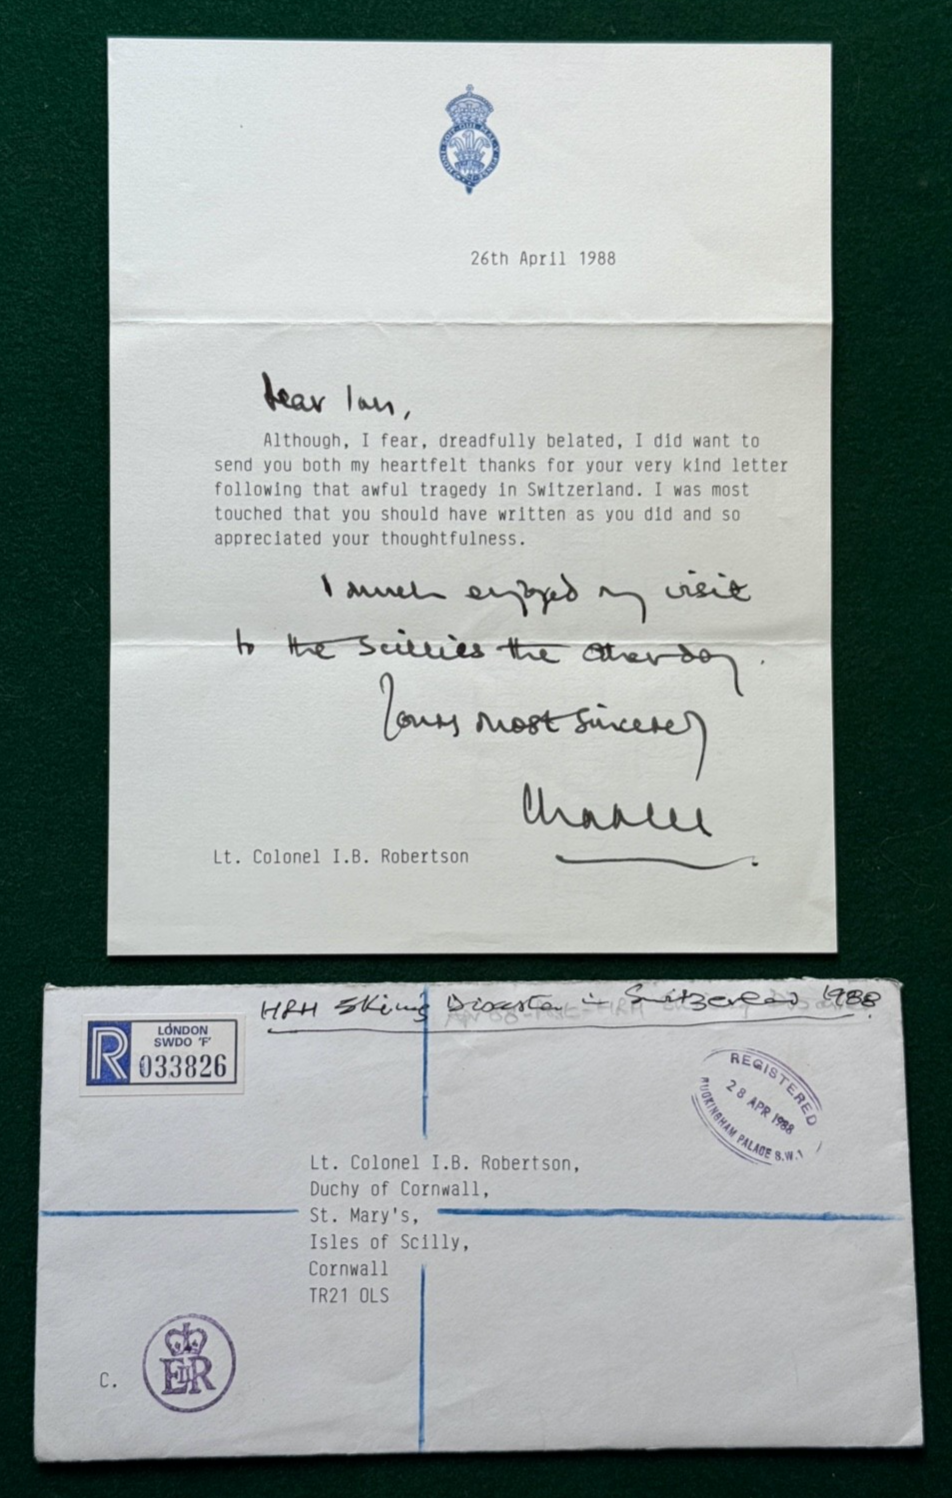 26th April 1988
Dear Ian,
Although, I fear, dreadfully belated, I did want to
send you both my heartfelt thanks for your very kind letter
following that awful tragedy in Switzerland. I was most
touched that you should have written as you did and so
appreciated your thoughtfulness.
I much enjoyed my visit
to the Scillies the other day.
Yours most sincerely
Charles
Lt. Colonel I.B. Robertson
HRH Skiing Disaster in Switzerland 1988
R
LONDON
SWDO 'F'
033826
REGISTERED
28 APR 1988
BUCKINGHAM PALACE S.W.1
Lt. Colonel I.B. Robertson,
Duchy of Cornwall,
St. Mary's,
Isles of Scilly,
Cornwall
TR21 OLS
C.
EIIR